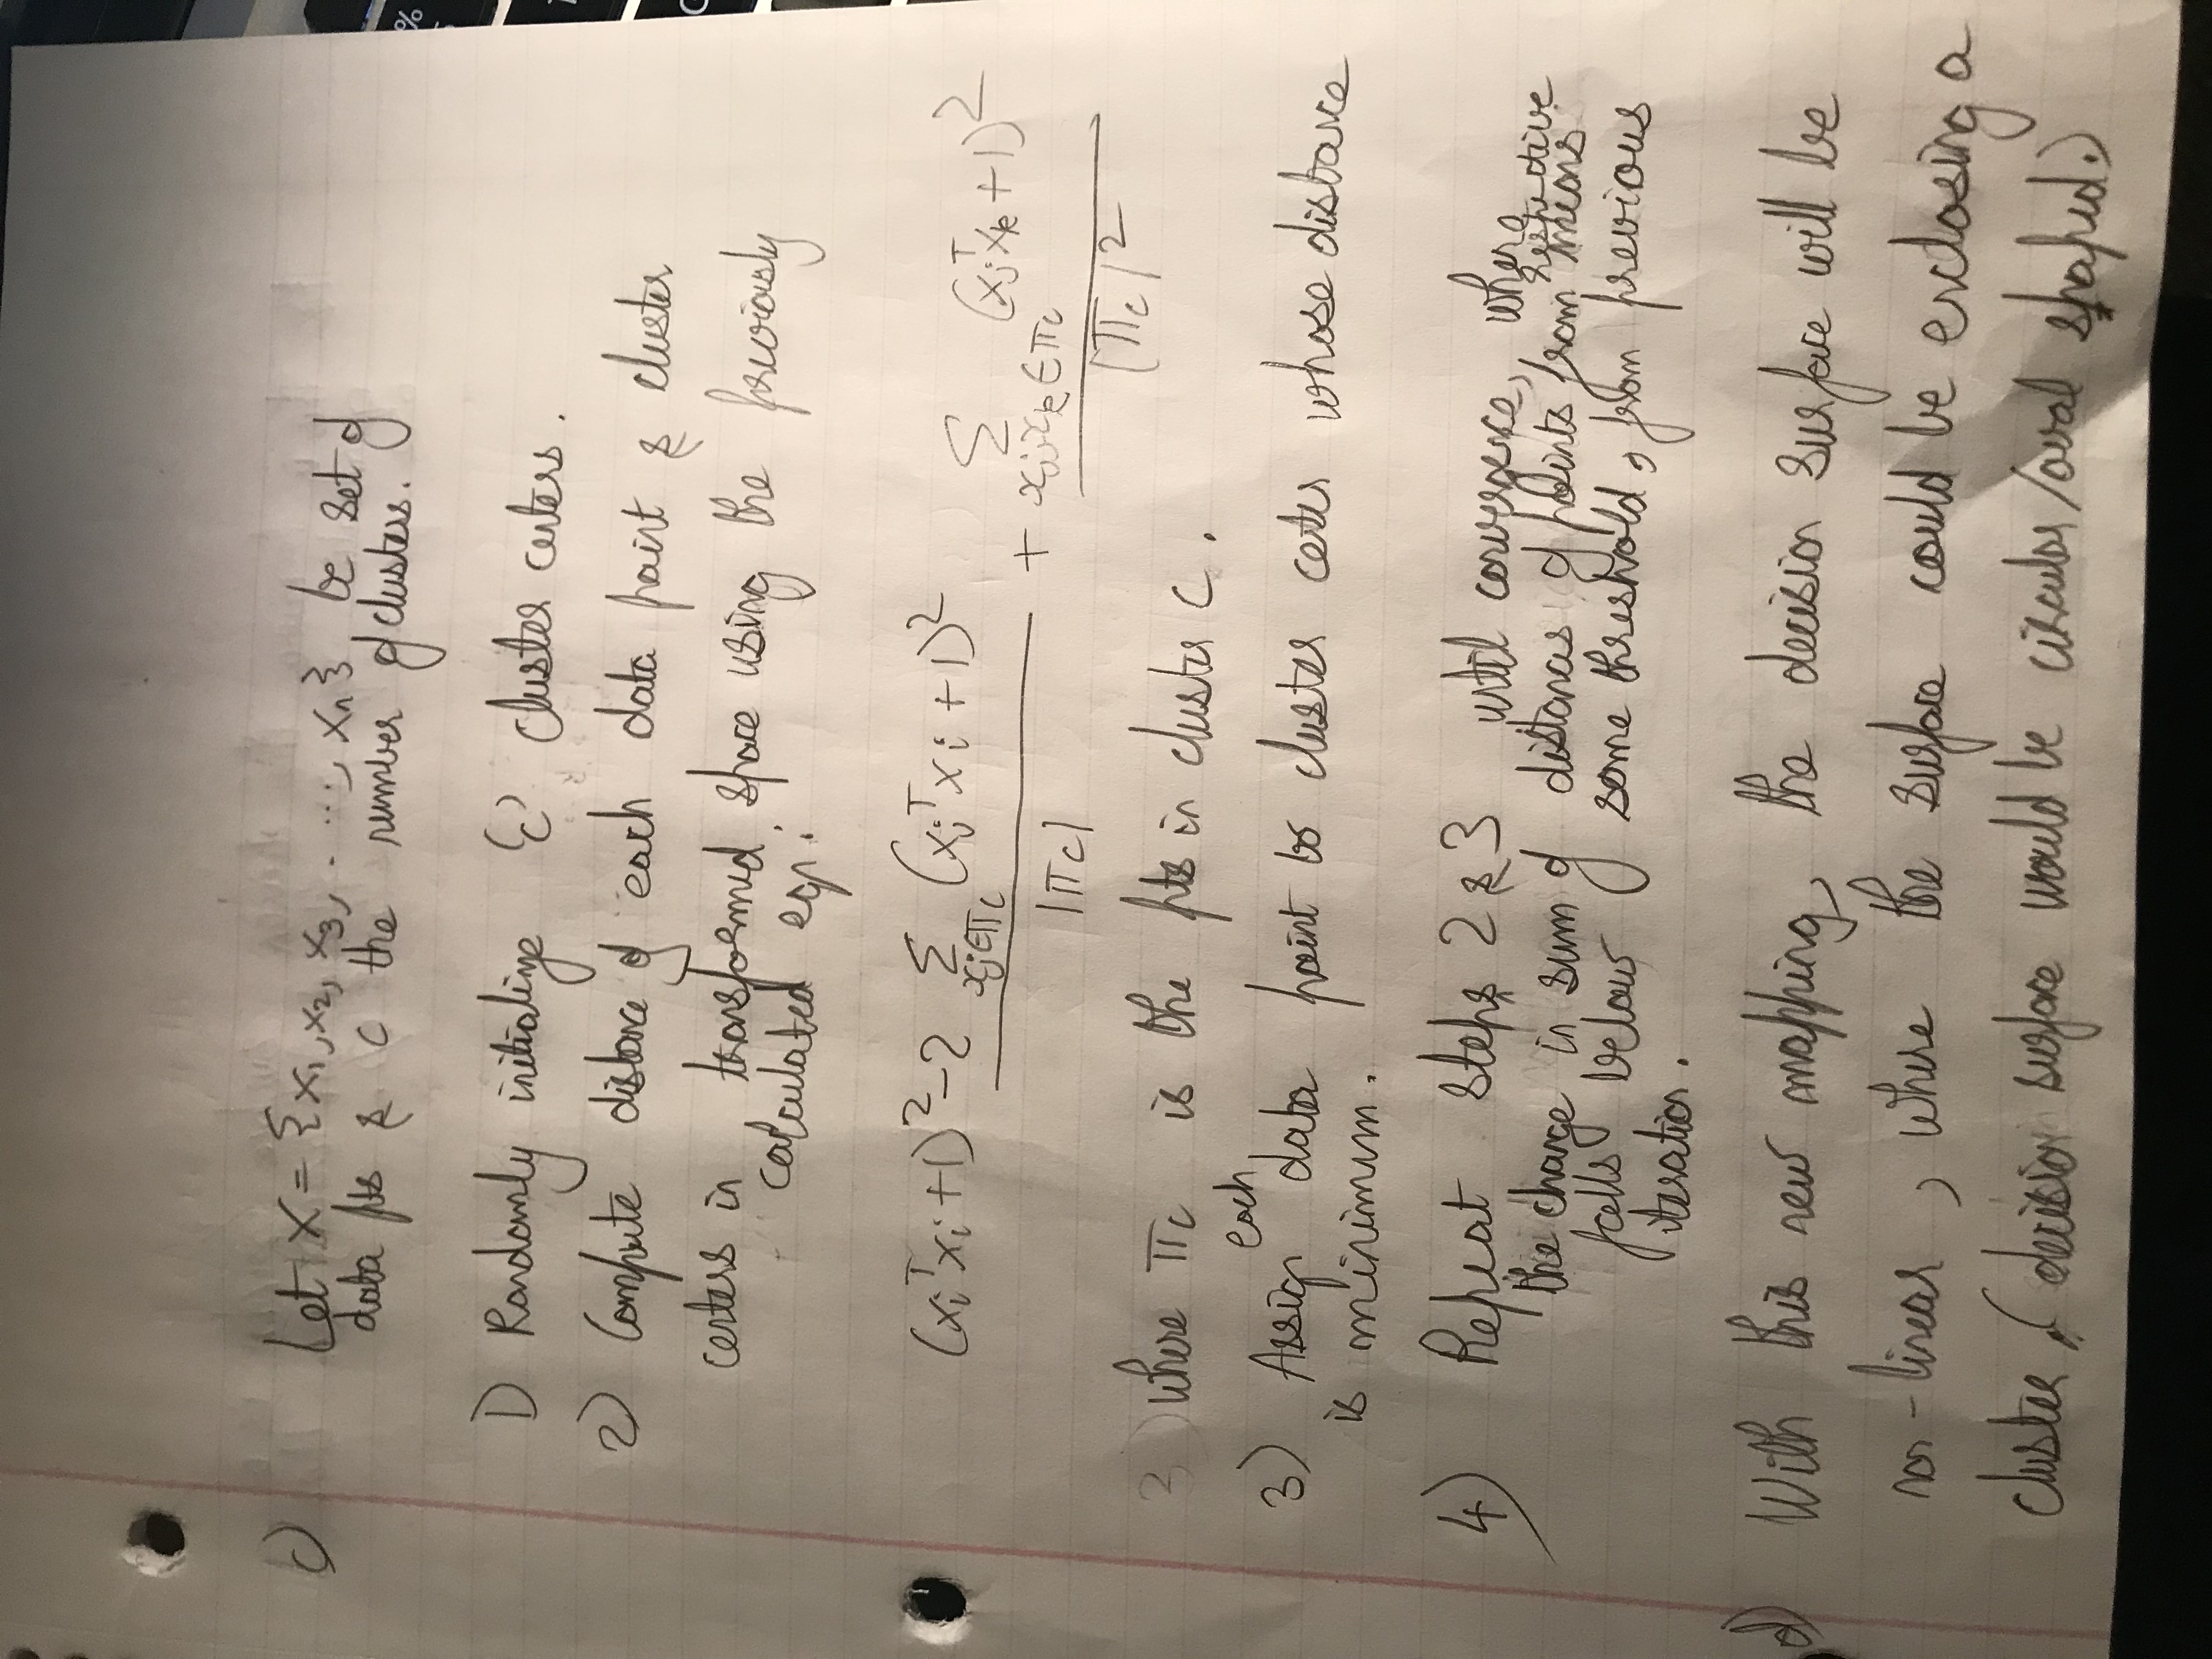 c) Let X = {x₁, x₂, x₃, . ..., xₙ} be set of
data pts & C the number of clusters.
1) Randomly initialize 'C' cluster centers.
2) Compute distance of each data point & cluster
centers in transformed space using the previously
calculated eqn:
(xᵢᵀxᵢ+1)² - 2 Σ_{xⱼ∈πc} (xⱼᵀxᵢ+1)² / |πc| + Σ_{xⱼ,xₖ∈πc} (xⱼᵀxₖ+1)² / |πc|²
where πc is the pts in cluster C.
3) Assign each data point to cluster center whose distance
is minimum.
4) Repeat steps 2 & 3 until convergence, where
the change in sum of distances of points from respective means
falls below some threshold, from previous
iteration.
d) With this new mapping, the decision surface will be
non-linear, where the surface could be enclosing a
cluster. (decision surface would be circular/oval shaped.)
%